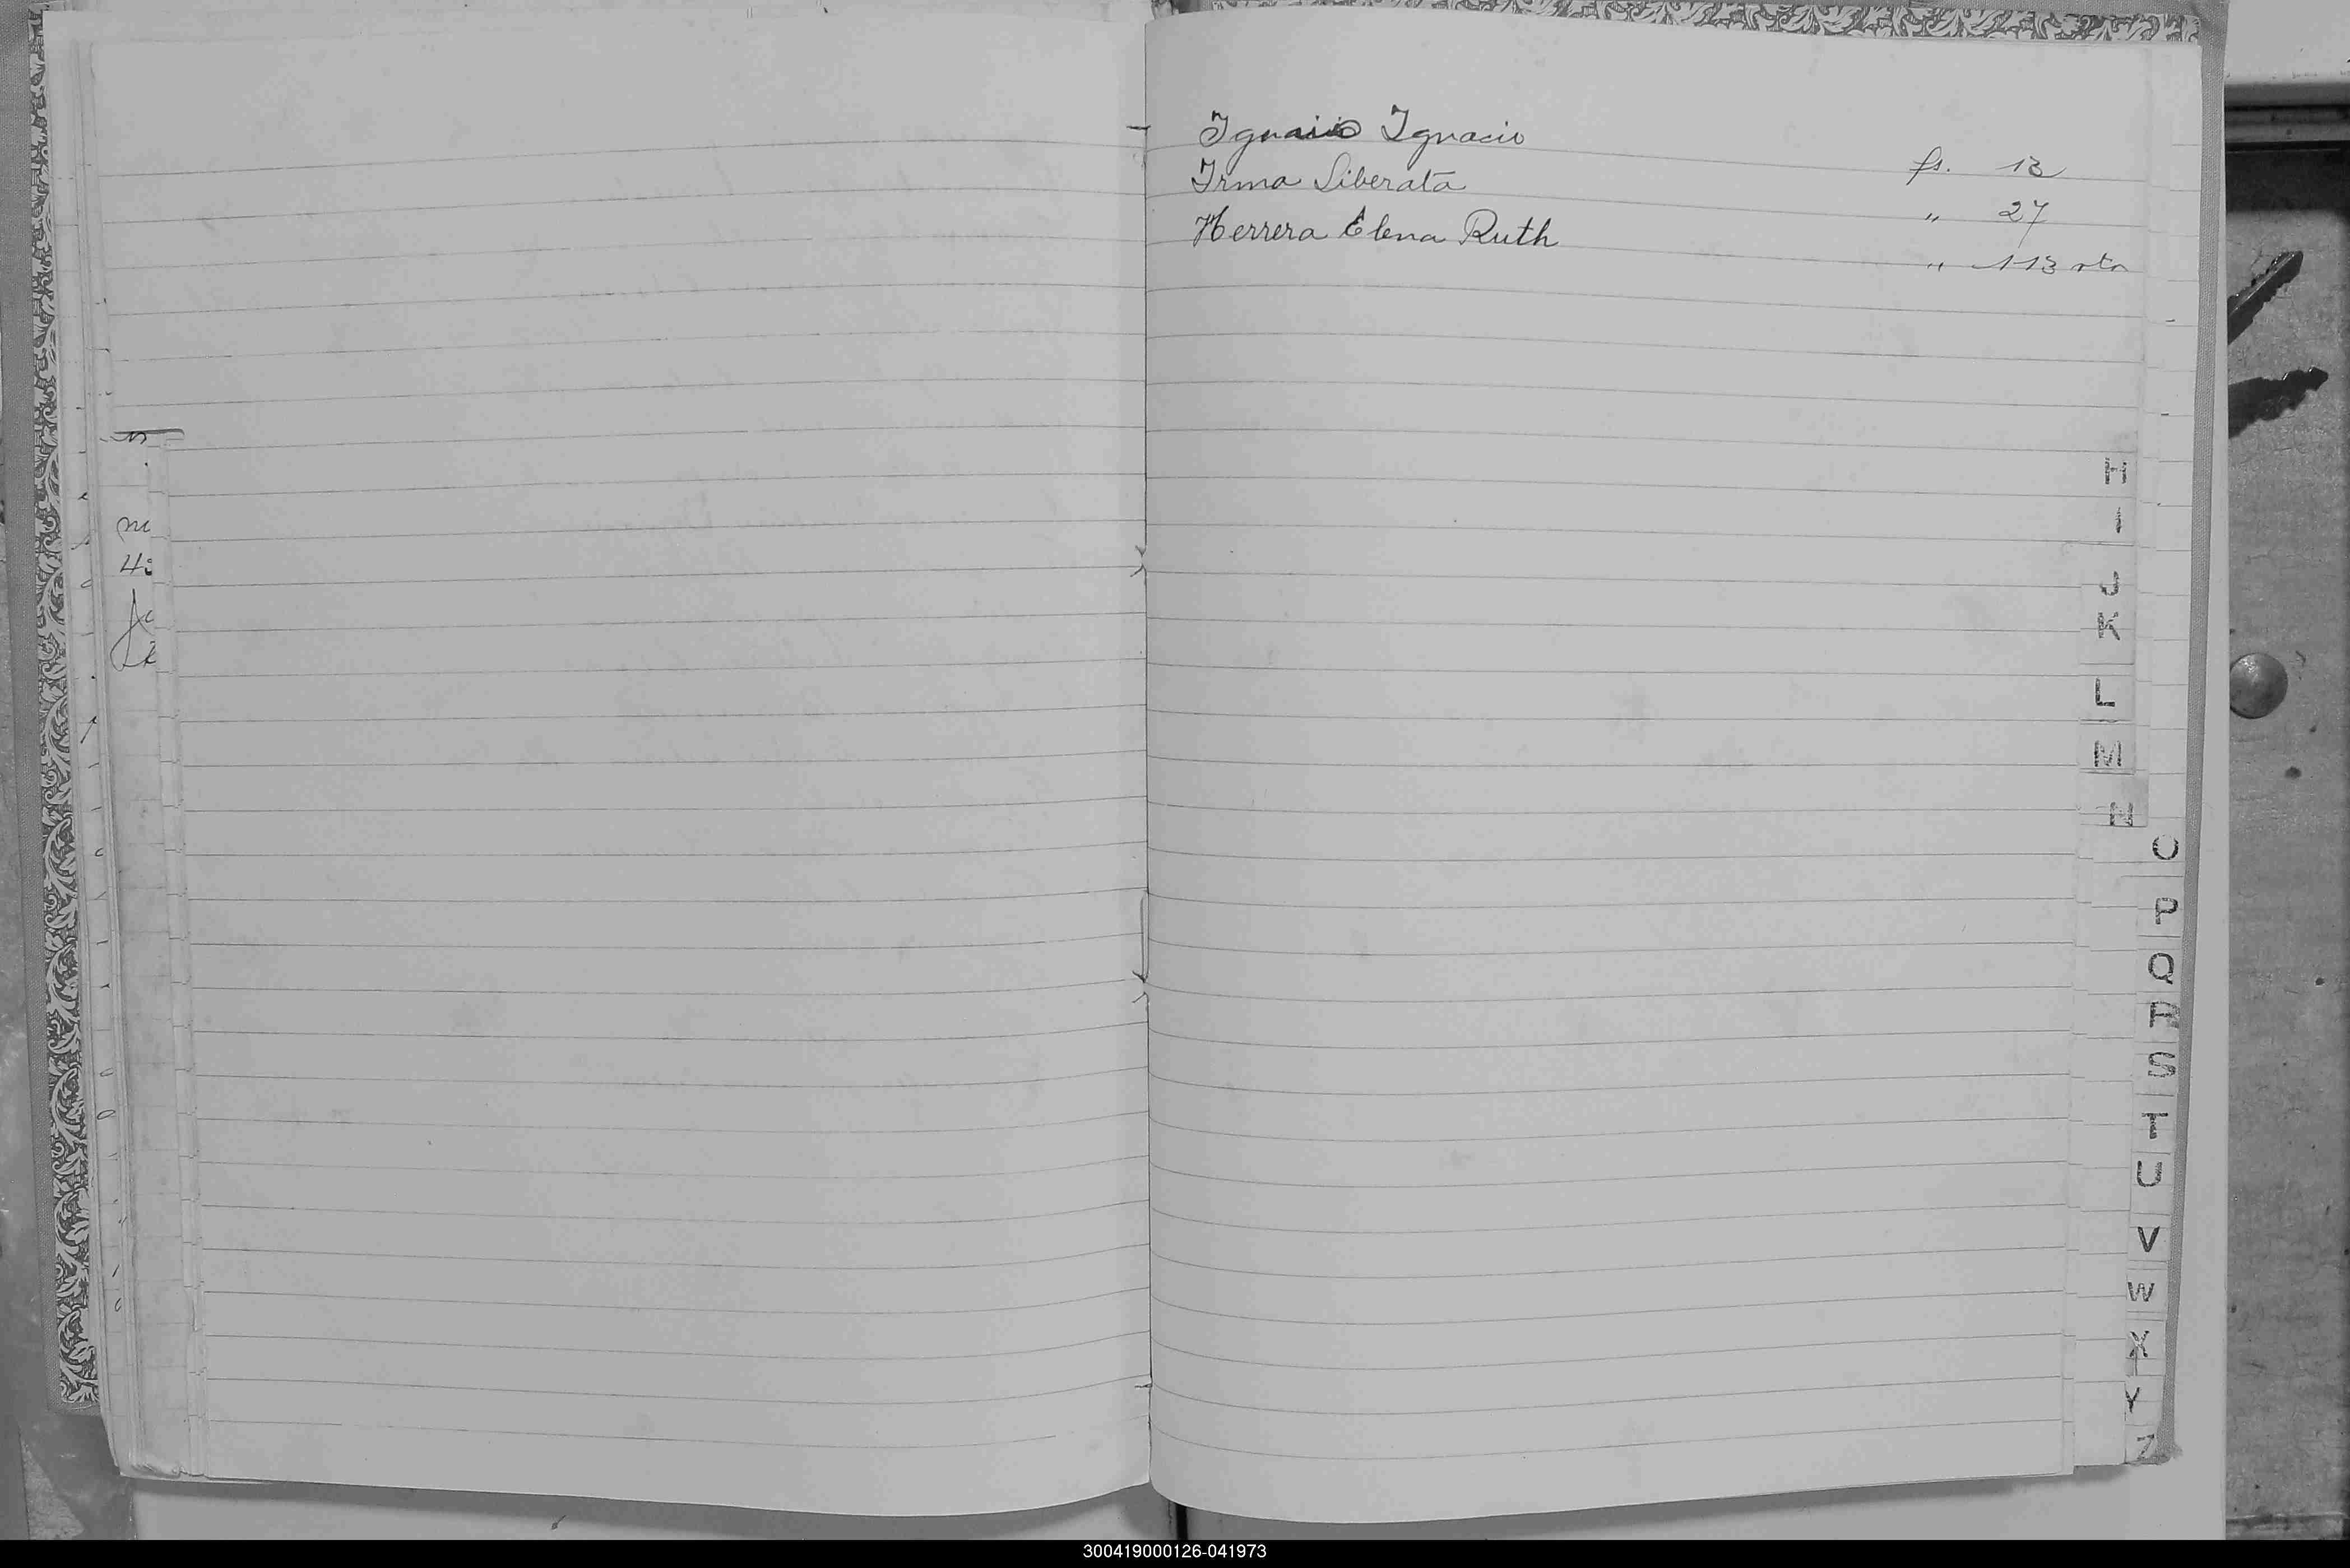 Ignacio Ignacio fs. 13
Irma Liberata " 27
Herrera Elena Ruth " 113 vta
H
I
J
K
L
M
N
O
P
Q
R
S
T
U
V
W
X
Y
Z
300419000126-041973